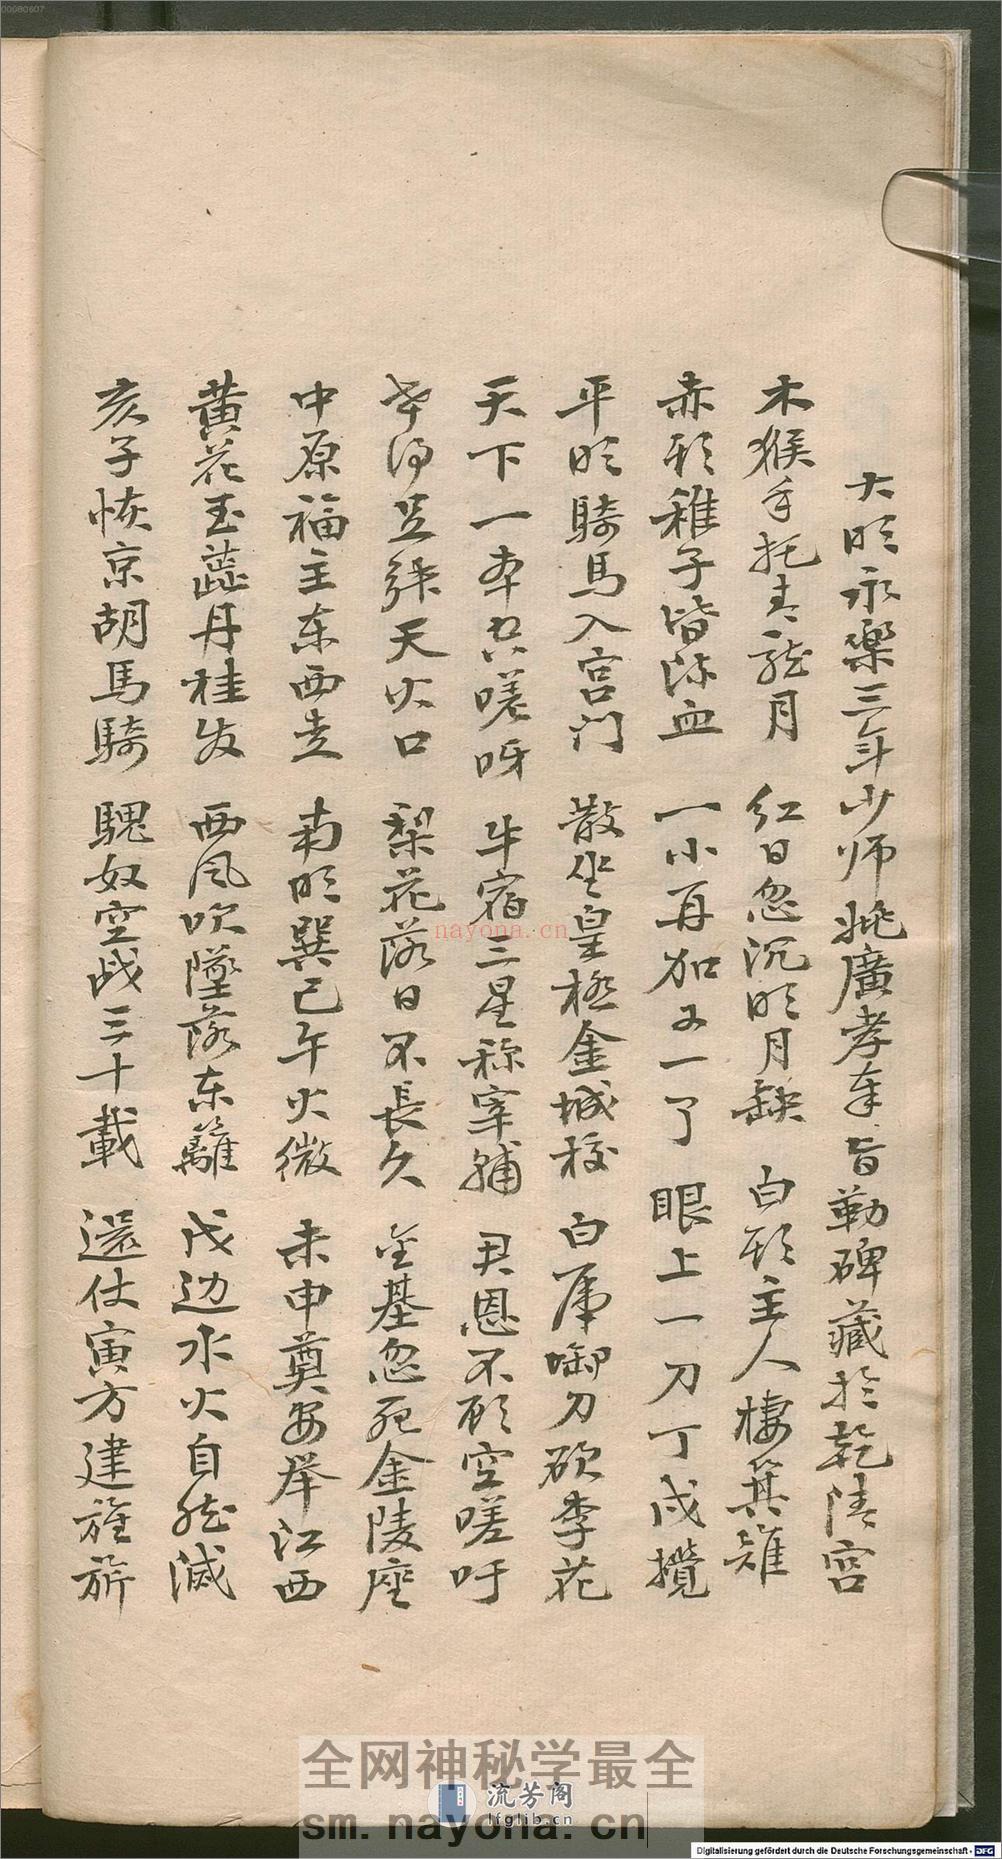 大明永樂三年少师姚廣孝奉旨勒碑藏於乾清宫
木猴手托青龙月 红日忽沉明月缺 白头主人棲箕雉
赤形稚子皆流血 一小再加又一了 眼上一刀丁戍攪
平明騎馬入宫门 散坐皇極金城校 白虎啣刀砍李花
天下一本共嗟呀 牛宿三星称宰辅 君恩不顾空嗟吁
天火口 梨花落日不長久 基忽死金陵座
中原福主东西走 南明巽巳午火微 未申奠安举江西
黄花玉蕋丹桂发 西风吹墜落东籬 戊边水火自然滅
亥子恢京胡馬騎 騩奴空战三十載 還仗寅方建旌旂
00080607
nayona.cn
全网神秘学最全
流芳阁
lfglib.cn
sm.nayona.cn
Digitalisierung gefördert durch die Deutsche Forschungsgemeinschaft - DFG